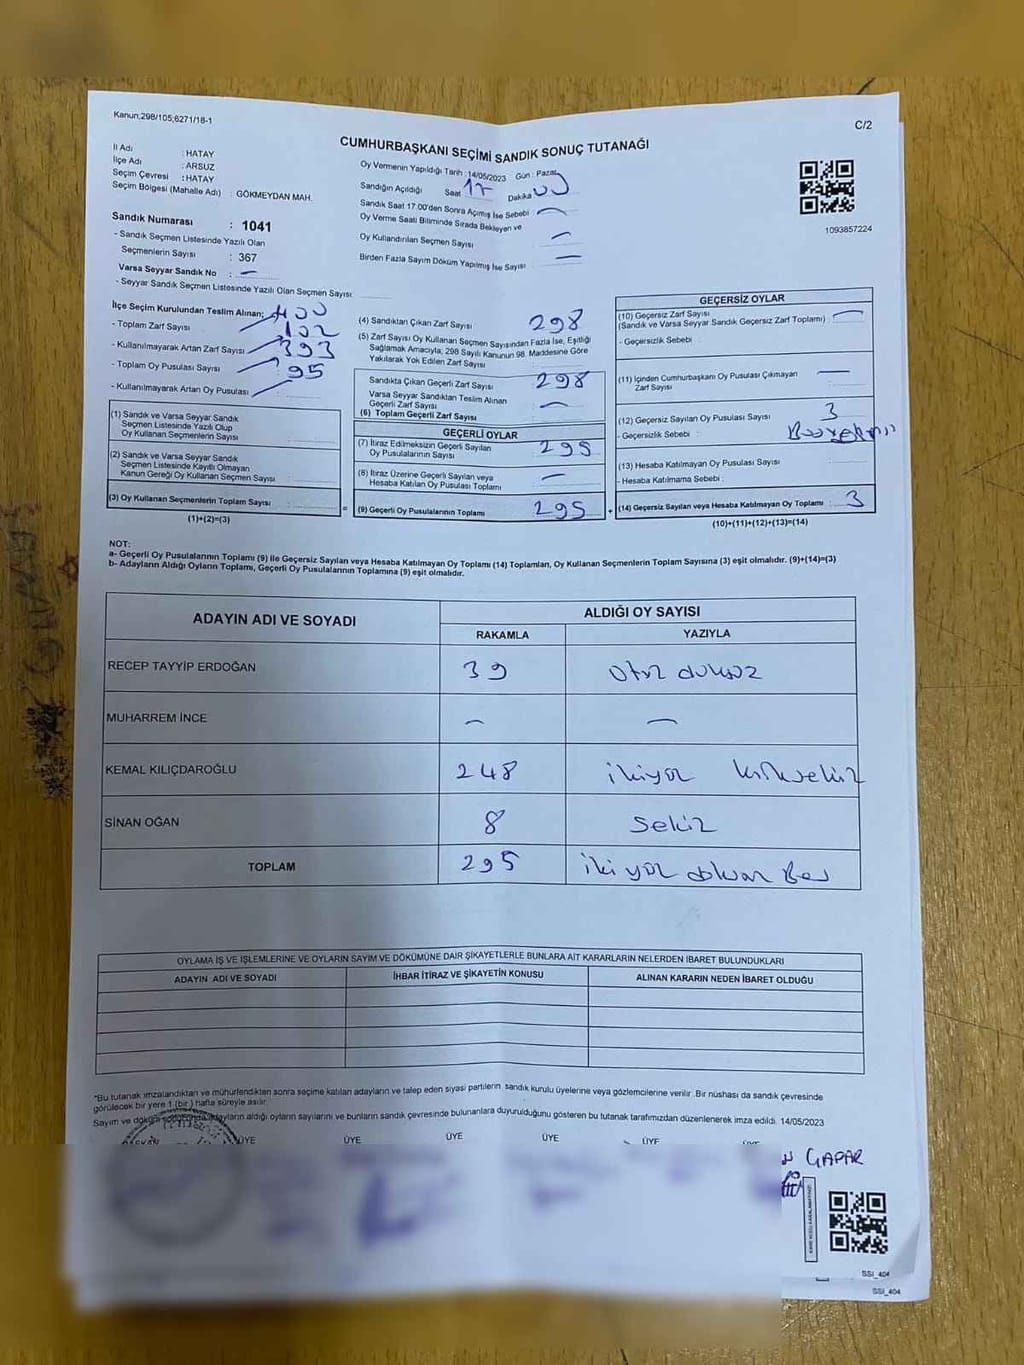 Kanun;298/105;6271/18-1
C/2
CUMHURBAŞKANI SEÇİMİ SANDIK SONUÇ TUTANAĞI
İl Adı : HATAY
İlçe Adı : ARSUZ
Seçim Çevresi : HATAY
Seçim Bölgesi (Mahalle Adı) : GÖKMEYDAN MAH.
Sandık Numarası : 1041
- Sandık Seçmen Listesinde Yazılı Olan
Seçmenlerin Sayısı : 367
Varsa Seyyar Sandık No : —
- Seyyar Sandık Seçmen Listesinde Yazılı Olan Seçmen Sayısı:
Oy Vermenin Yapıldığı Tarih : 14/05/2023 Gün : Pazar
Sandığın Açıldığı Saat 17 Dakika 00
Sandık Saat 17:00'den Sonra Açımış İse Sebebi : —
Oy Verme Saati Bitiminde Sırada Bekleyen ve
Oy Kullandırılan Seçmen Sayısı —
Birden Fazla Sayım Döküm Yapılmış İse Sayısı —
1093857224
İlçe Seçim Kurulundan Teslim Alınan; 400
- Toplam Zarf Sayısı 102
- Kullanılmayarak Artan Zarf Sayısı 393
- Toplam Oy Pusulası Sayısı 95
- Kullanılmayarak Artan Oy Pusulası
(1) Sandık ve Varsa Seyyar Sandık
Seçmen Listesinde Yazılı Olup
Oy Kullanan Seçmenlerin Sayısı :
(2) Sandık ve Varsa Seyyar Sandık
Seçmen Listesinde Kayıtlı Olmayan
Kanun Gereği Oy Kullanan Seçmen Sayısı :
(3) Oy Kullanan Seçmenlerin Toplam Sayısı :
(1)+(2)=(3)
(4) Sandıktan Çıkan Zarf Sayısı 298
(5) Zarf Sayısı Oy Kullanan Seçmen Sayısından Fazla İse, Eşitliği
Sağlamak Amacıyla; 298 Sayılı Kanunun 98. Maddesine Göre
Yakılarak Yok Edilen Zarf Sayısı
Sandıkta Çıkan Geçerli Zarf Sayısı 298
Varsa Seyyar Sandıktan Teslim Alınan
Geçerli Zarf Sayısı —
(6) Toplam Geçerli Zarf Sayısı
GEÇERLİ OYLAR
(7) İtiraz Edilmeksizin Geçerli Sayılan
Oy Pusulalarının Sayısı 295
(8) İtiraz Üzerine Geçerli Sayılan veya
Hesaba Katılan Oy Pusulası Toplamı —
(9) Geçerli Oy Pusulalarının Toplamı 295
GEÇERSİZ OYLAR
(10) Geçersiz Zarf Sayısı —
(Sandık ve Varsa Seyyar Sandık Geçersiz Zarf Toplamı) :
- Geçersizlik Sebebi :
(11) İçinden Cumhurbaşkanı Oy Pusulası Çıkmayan —
Zarf Sayısı
(12) Geçersiz Sayılan Oy Pusulası Sayısı 3
- Geçersizlik Sebebi :
(13) Hesaba Katılmayan Oy Pusulası Sayısı
- Hesaba Katılmama Sebebi :
(14) Geçersiz Sayılan veya Hesaba Katılmayan Oy Toplamı : 3
(10)+(11)+(12)+(13)=(14)
NOT:
a- Geçerli Oy Pusulalarının Toplamı (9) ile Geçersiz Sayılan veya Hesaba Katılmayan Oy Toplamı (14) Toplamları, Oy Kullanan Seçmenlerin Toplam Sayısına (3) eşit olmalıdır. (9)+(14)=(3)
b- Adayların Aldığı Oyların Toplamı, Geçerli Oy Pusulalarının Toplamına (9) eşit olmalıdır.
ADAYIN ADI VE SOYADI ALDIĞI OY SAYISI
RAKAMLA YAZIYLA
RECEP TAYYİP ERDOĞAN 39 otuz dokuz
MUHARREM İNCE — —
KEMAL KILIÇDAROĞLU 248 ikiyüz kırksekiz
SİNAN OĞAN 8 sekiz
TOPLAM 295 iki yüz doksan beş
OYLAMA İŞ VE İŞLEMLERİNE VE OYLARIN SAYIM VE DÖKÜMÜNE DAİR ŞİKAYETLERLE BUNLARA AİT KARARLARIN NELERDEN İBARET BULUNDUKLARI
ADAYIN ADI VE SOYADI İHBAR İTİRAZ VE ŞİKAYETİN KONUSU ALINAN KARARIN NEDEN İBARET OLDUĞU
"Bu tutanak imzalandıktan ve mühürlendikten sonra seçime katılan adayların ve talep eden siyasi partilerin sandık kurulu üyelerine veya gözlemcilerine verilir. Bir nüshası da sandık çevresinde
görülecek bir yere 1 (bir) hafta süreyle asılır.
Sayım ve döküm sonunda adayların aldığı oyların sayılarını ve bunların sandık çevresinde bulunanlara duyurulduğunu gösteren bu tutanak tarafımızdan düzenlenerek imza edildi. 14/05/2023
BAŞKAN ÜYE ÜYE ÜYE ÜYE ÜYE ÜYE
GAPAR
SSI_404
SSI_404